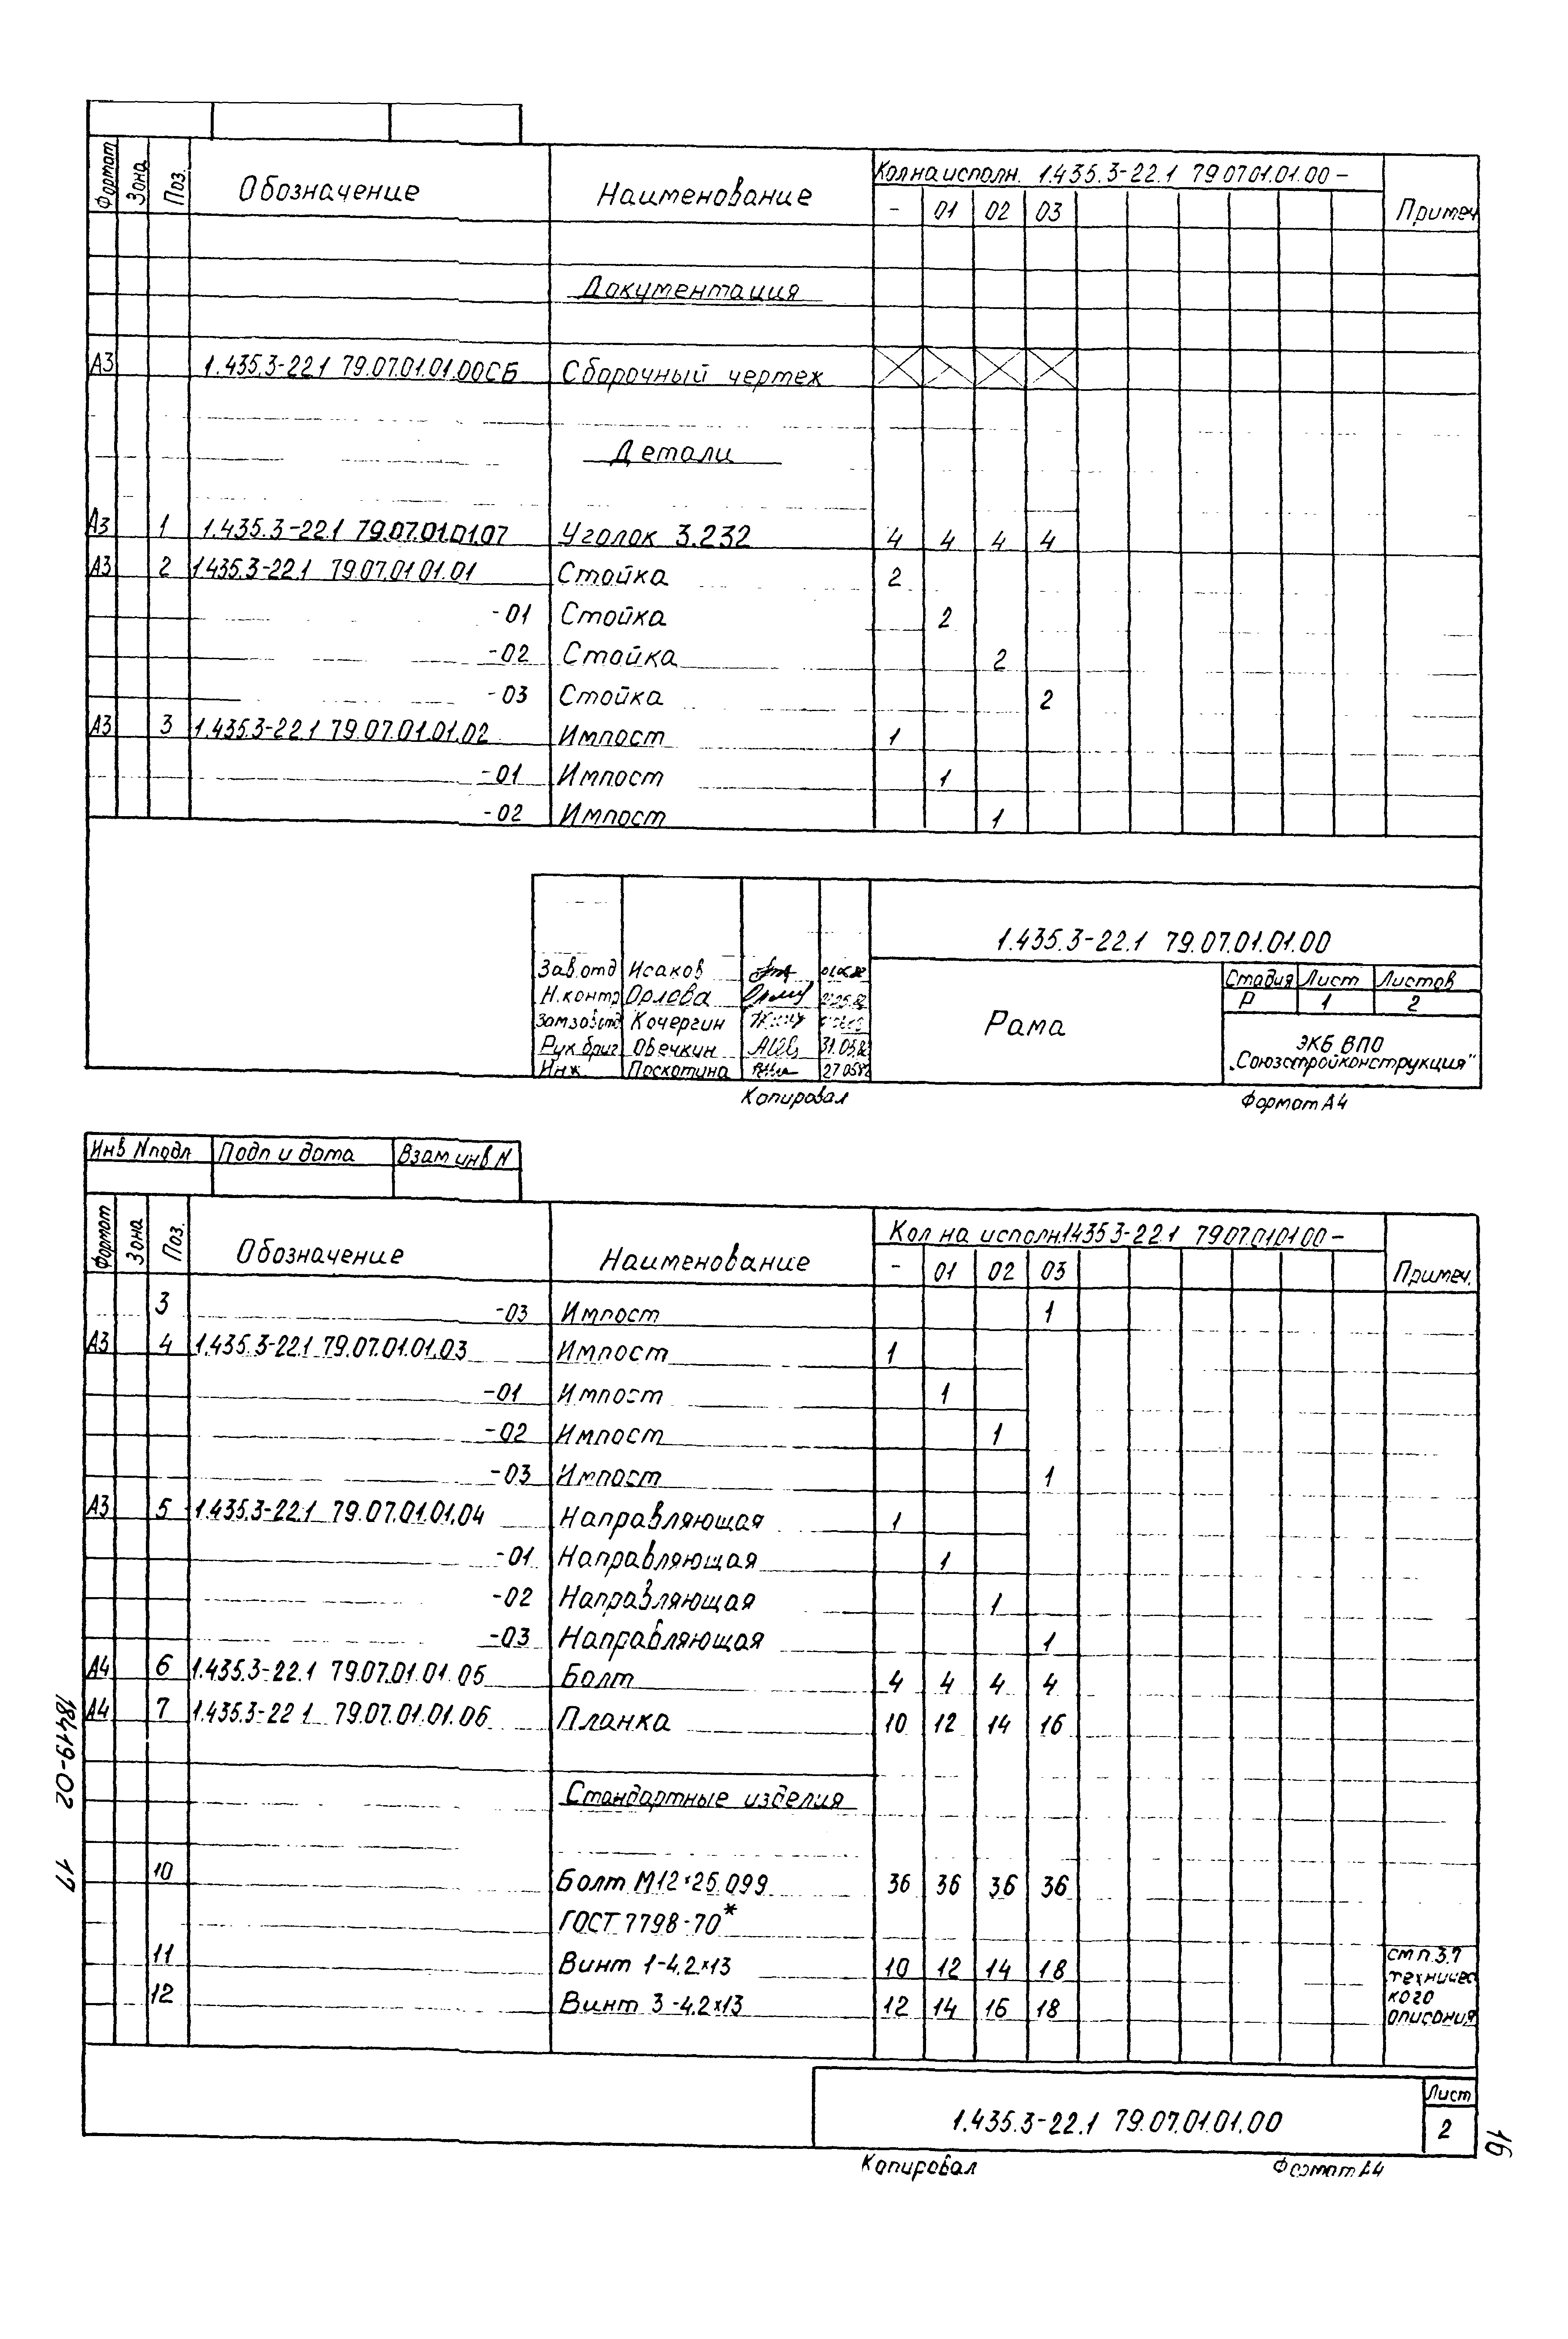 Формат Зона Поз. Обозначение Наименование Кол на исполн. 1.435.3-22.1 79 07.01.01.00 - Примеч
- 01 02 03
Документация
А3 1.435.3-22.1 79.07.01.01.00СБ Сборочный чертеж
Детали
А3 1 1.435.3-22.1 79.07.01.01.07 Уголок 3.232 4 4 4 4
А3 2 1.435.3-22.1 79.07.01.01.01 Стойка 2
-01 Стойка 2
-02 Стойка 2
-03 Стойка 2
А3 3 1.435.3-22.1 79.07.01.01.02 Импост 1
-01 Импост 1
-02 Импост 1
1.435.3-22.1 79.07.01.01.00
Зав.отд Исаков
Н.контр Орлова
Зам зав отд Кочергин
Рук бриг. Овечкин 31.05.82
Инж. Поскотина 27 05 82
Рама
Стадия Лист Листов
Р 1 2
ЭКБ ВПО
„Союзстройконструкция"
Копировал Формат А4
Инв N подл Подп и дата Взам инв N
Формат Зона Поз. Обозначение Наименование Кол на исполн. 1435 3-22 1 79 07.01 01 00 - Примеч.
- 01 02 03
3 -03 Импост 1
А3 4 1.435 3-22.1 79.07.01.01.03 Импост 1
-01 Импост 1
-02 Импост 1
-03 Импост 1
А3 5 1.435.3-22.1 79.07.01.01.04 Направляющая 1
-01 Направляющая 1
-02 Направляющая 1
-03 Направляющая 1
А4 6 1.435.3-22.1 79.07.01.01.05 Болт 4 4 4 4
А4 7 1.435.3-22 1 79.07.01.01.06 Планка 10 12 14 16
Стандартные изделия
10 Болт М12×25.099 36 36 36 36
ГОСТ 7798-70*
11 Винт 1-4.2×13 10 12 14 18 см п. 3.7
техничес
12 Винт 3-4.2×13 12 14 16 18 кого
описания
1.435.3-22.1 79.07.01.01.00
Лист
2
Копировал Формат А4
18419-02 17
16